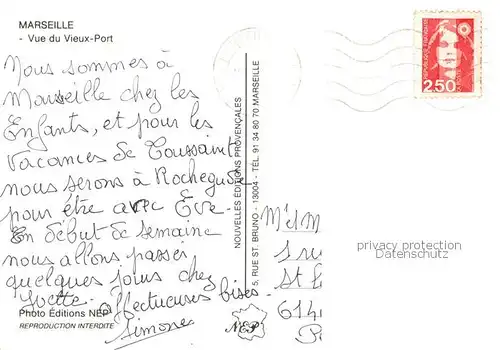 MARSEILLE
- Vue du Vieux-Port
Nous sommes à
Marseille chez les
Enfants, et pour les
vacances de Toussaint
nous serons à Rochegude
pour être avec Eve.
En début de semaine
nous allons passer
quelques jours chez
Yvette. Affectueuses bises.
Simone
Photo Éditions NEP
REPRODUCTION INTERDITE
NOUVELLES ÉDITIONS PROVENÇALES
5, RUE ST. BRUNO - 13004 - TÉL. 91 34 80 70 MARSEILLE
NEP
RÉPUBLIQUE FRANÇAISE
2,50
privacy protection
Datenschutz
M et M
1 ru
St
614